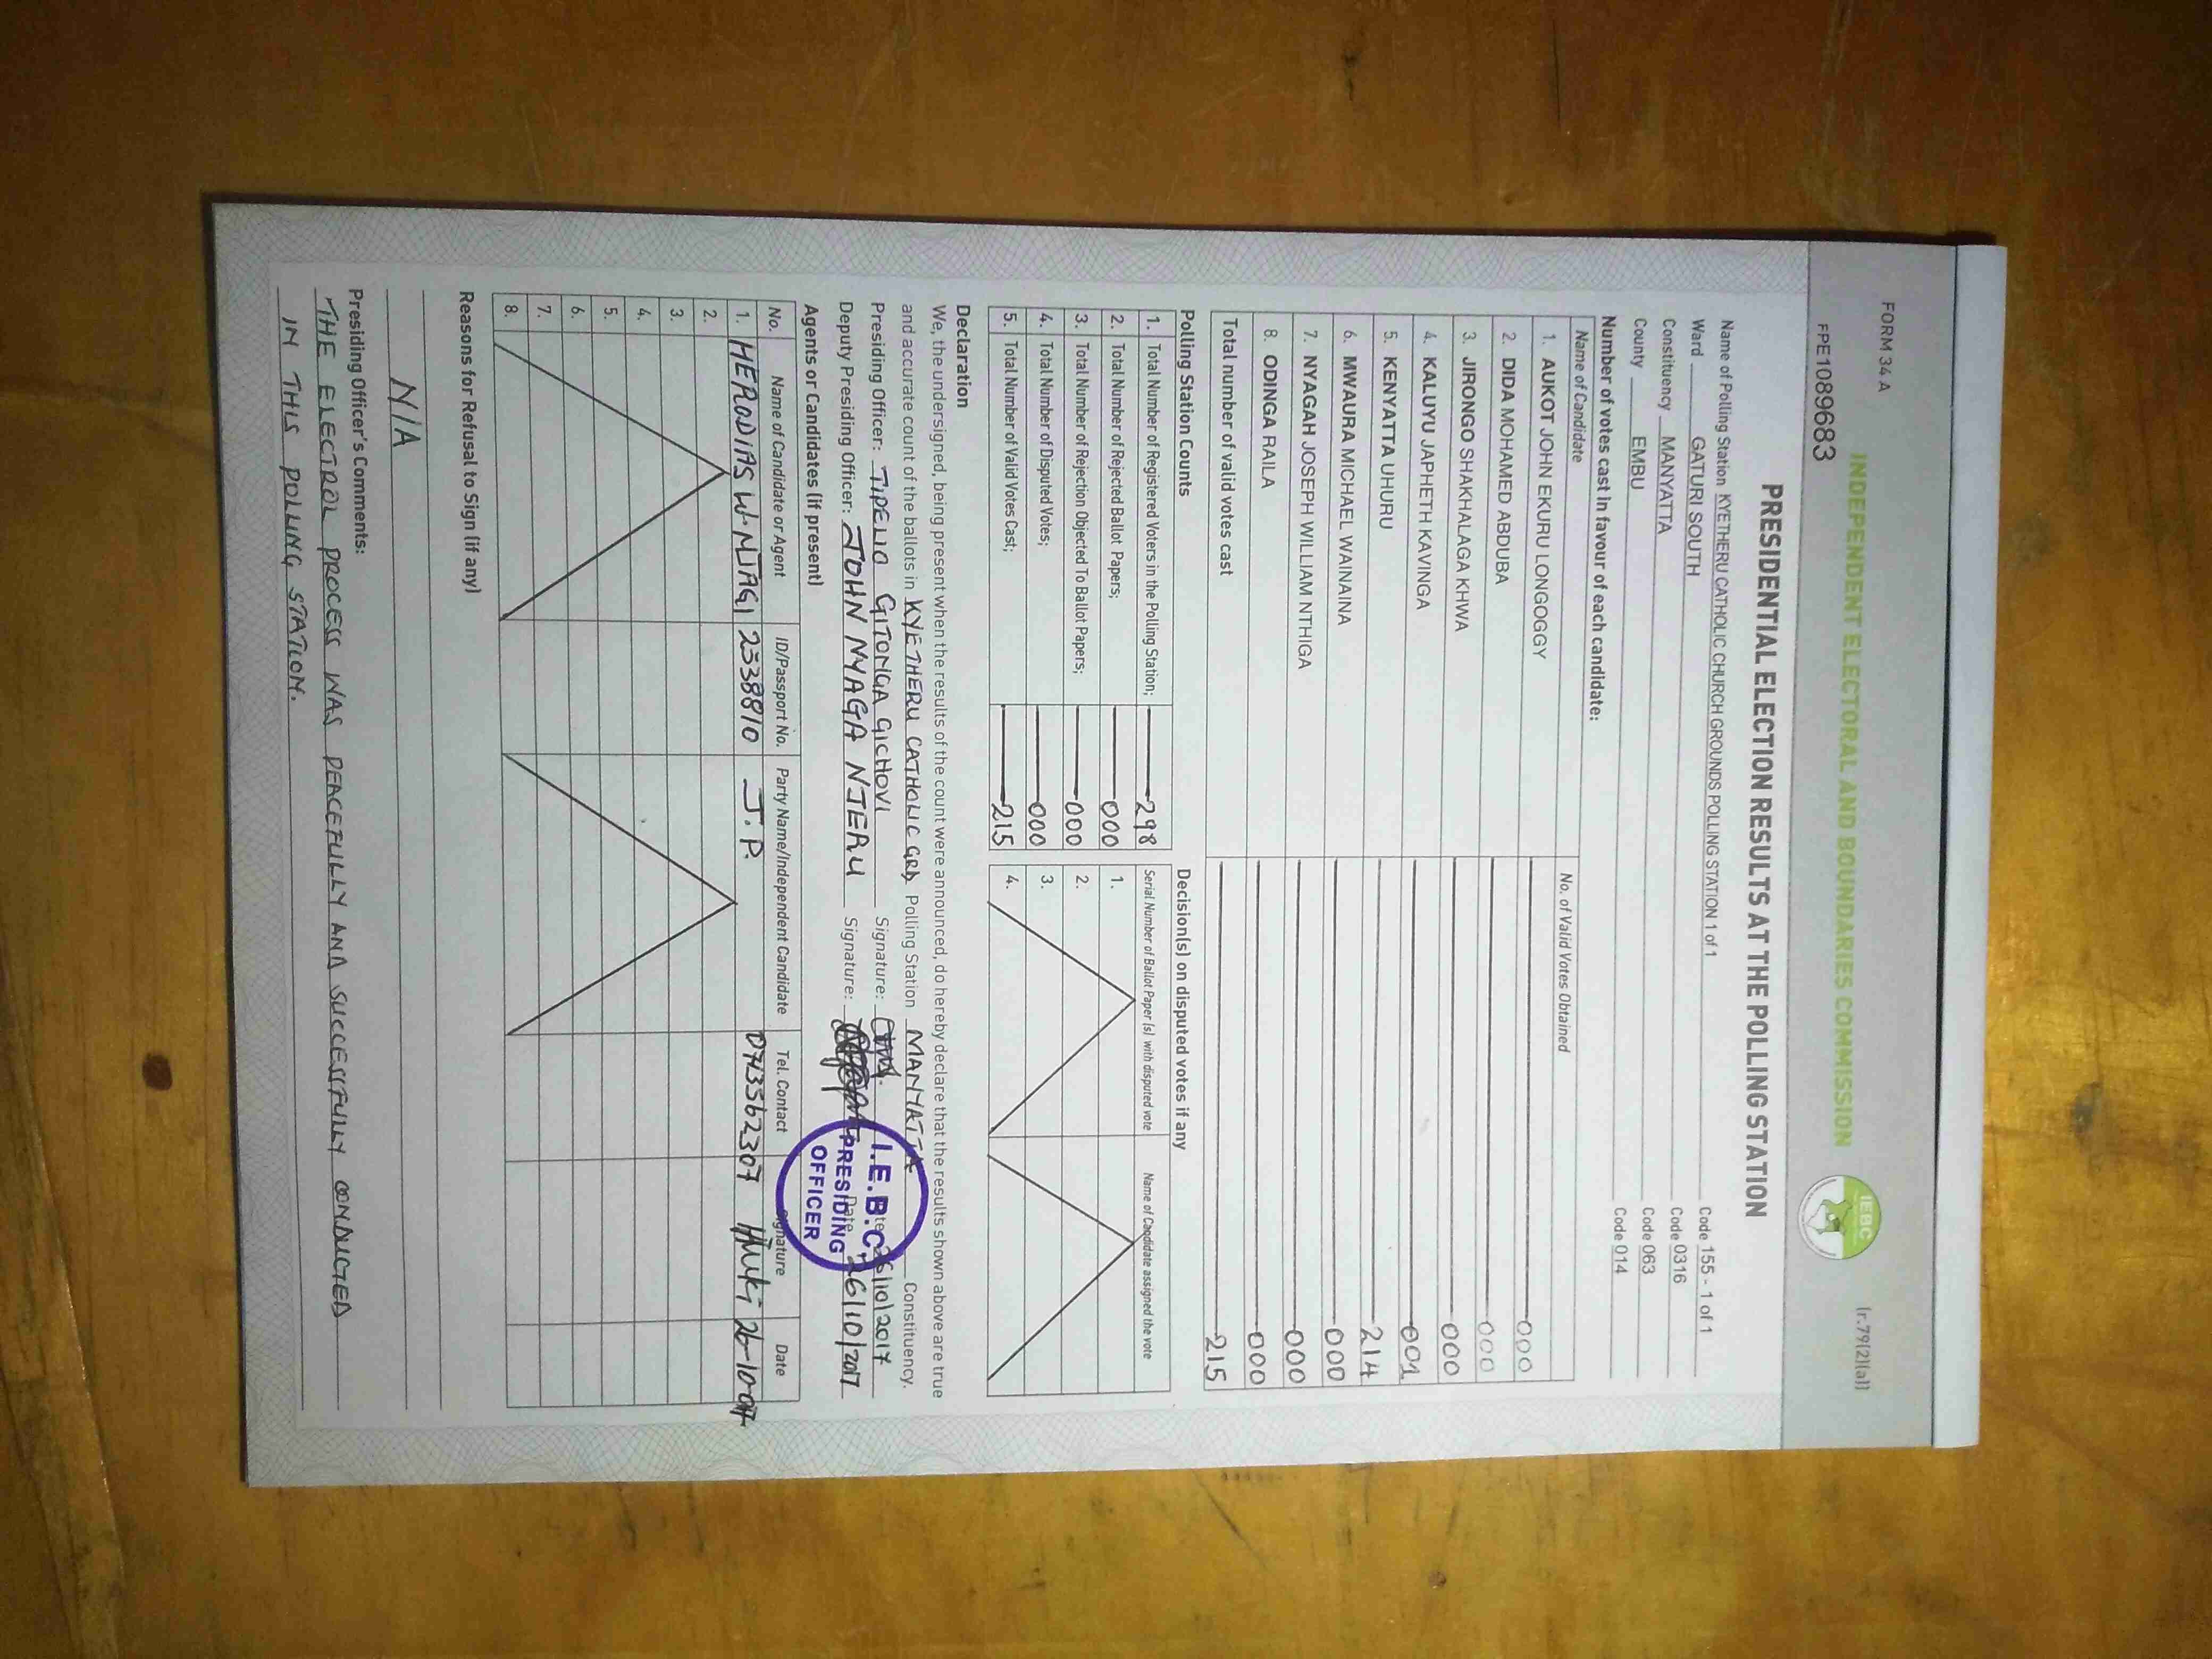 FORM 34 A
(r.79(2)(a))
FPE1089683
INDEPENDENT ELECTORAL AND BOUNDARIES COMMISSION
IEBC
PRESIDENTIAL ELECTION RESULTS AT THE POLLING STATION
Name of Polling Station KYETHERU CATHOLIC CHURCH GROUNDS POLLING STATION 1 of 1 Code 155 - 1 of 1
Ward GATURI SOUTH Code 0316
Constituency MANYATTA Code 063
County EMBU Code 014
Number of votes cast in favour of each candidate:
Name of Candidate No. of Valid Votes Obtained
1. AUKOT JOHN EKURU LONGOGGY 000
2. DIDA MOHAMED ABDUBA 000
3. JIRONGO SHAKHALAGA KHWA 000
4. KALUYU JAPHETH KAVINGA 001
5. KENYATTA UHURU 214
6. MWAURA MICHAEL WAINAINA 000
7. NYAGAH JOSEPH WILLIAM NTHIGA 000
8. ODINGA RAILA 000
Total number of valid votes cast 215
Polling Station Counts
1. Total Number of Registered Voters in the Polling Station; 298
2. Total Number of Rejected Ballot Papers; 000
3. Total Number of Rejection Objected To Ballot Papers; 000
4. Total Number of Disputed Votes; 000
5. Total Number of Valid Votes Cast; 215
Decision(s) on disputed votes if any
Serial Number of Ballot Paper (s) with disputed vote Name of Candidate assigned the vote
1.
2.
3.
4.
Declaration
We, the undersigned, being present when the results of the count were announced, do hereby declare that the results shown above are true
and accurate count of the ballots in KYETHERU CATHOLIC GRD Polling Station MANYATTA Constituency.
Presiding Officer: TIPELIO GITONGA GICHOVI Signature: Date 26/10/2017
Deputy Presiding Officer: JOHN NYAGA NJERU Signature: Date 26/10/2017
I.E.B.C
PRESIDING
OFFICER
Agents or Candidates (if present)
No. Name of Candidate or Agent ID/Passport No. Party Name/Independent Candidate Tel. Contact Signature Date
1. HERODIAS W. NJAGI 2338810 J.P. 073362307 26-10-017
2.
3.
4.
5.
6.
7.
8.
Reasons for Refusal to Sign (if any)
N/A
Presiding Officer's Comments:
THE ELECTROL PROCESS WAS PEACEFULLY AND SUCCESSFULLY CONDUCTED
IN THIS POLLING STATION.